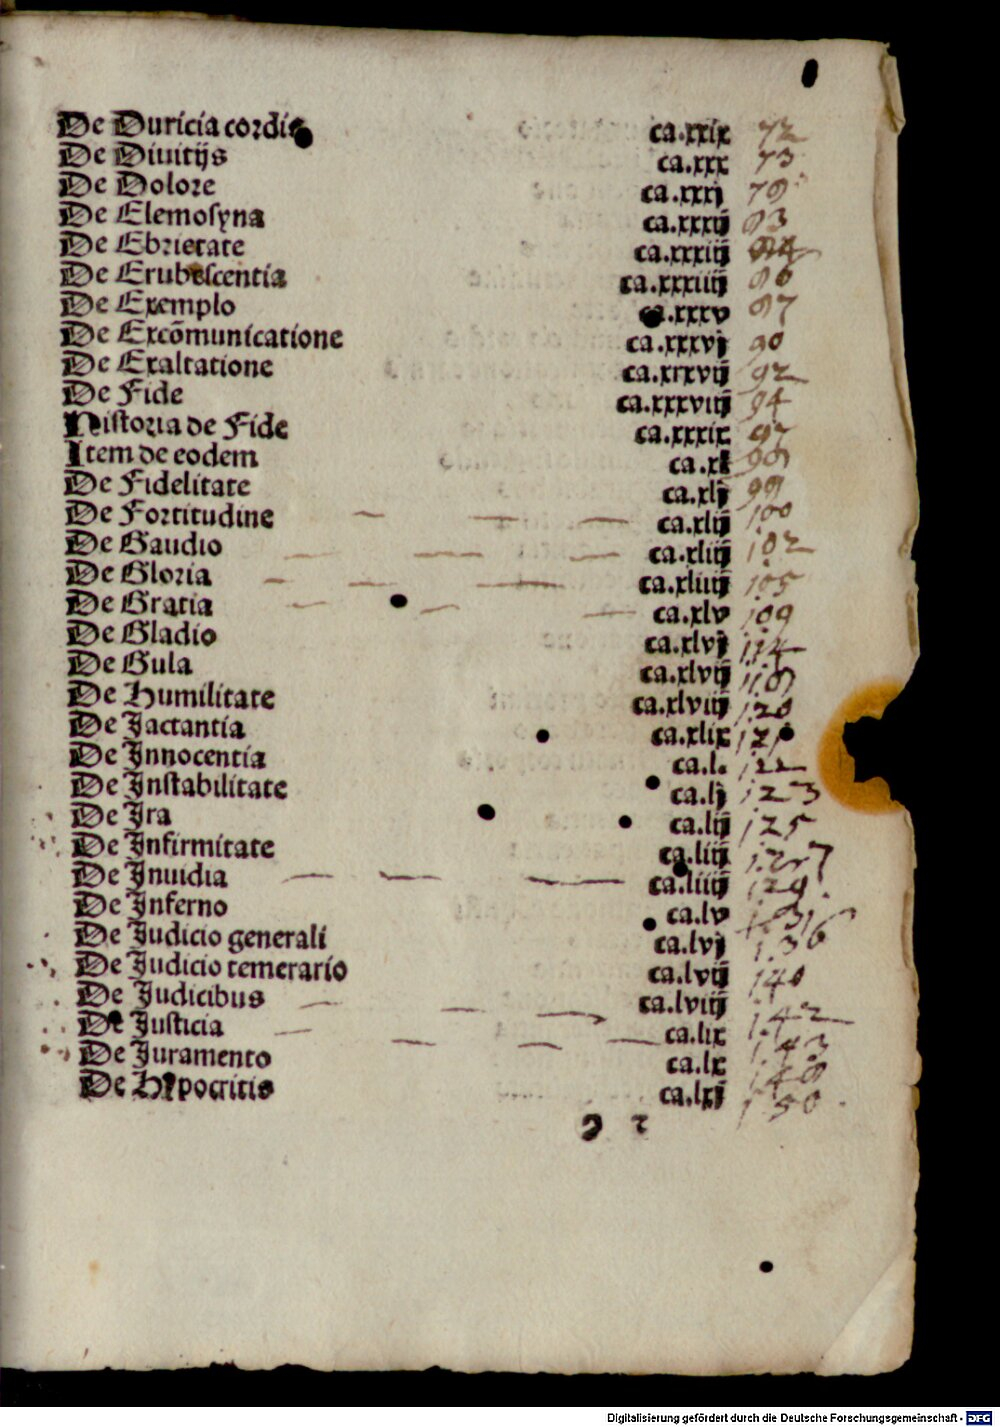 De Duricia cordis ca.xxix 72
De Diuitijs ca.xxx 73
De Dolore ca.xxxj 78
De Elemosyna ca.xxxij 83
De Ebrietate ca.xxxiij
De Erubescentia ca.xxxiiij 86
De Exemplo ca.xxxv 87
De Excōmunicatione ca.xxxvj 90
De Exaltatione ca.xxxvij 92
De Fide ca.xxxviij 94
Historia de Fide ca.xxxix 97
Item de eodem ca.xl 98
De Fidelitate ca.xlj 99
De Fortitudine ca.xlij 100
De Gaudio ca.xliij 102
De Gloria ca.xliiij 105
De Gratia ca.xlv 109
De Gladio ca.xlvj 114
De Gula ca.xlvij 118
De Humilitate ca.xlviij 120
De Jactantia ca.xlix 121
De Innocentia ca.l. 122
De Instabilitate ca.lj 123
De Ira ca.lij 125
De Infirmitate ca.liij 127
De Inuidia ca.liiij 129.
De Inferno ca.lv 131
De Judicio generali ca.lvj 136
De Judicio temerario ca.lvij 140
De Judicibus ca.lviij 142
De Justicia ca.lix 143
De Juramento ca.lx 148
De Hypocritis ca.lxj 150
Digitalisierung gefördert durch die Deutsche Forschungsgemeinschaft - DFG